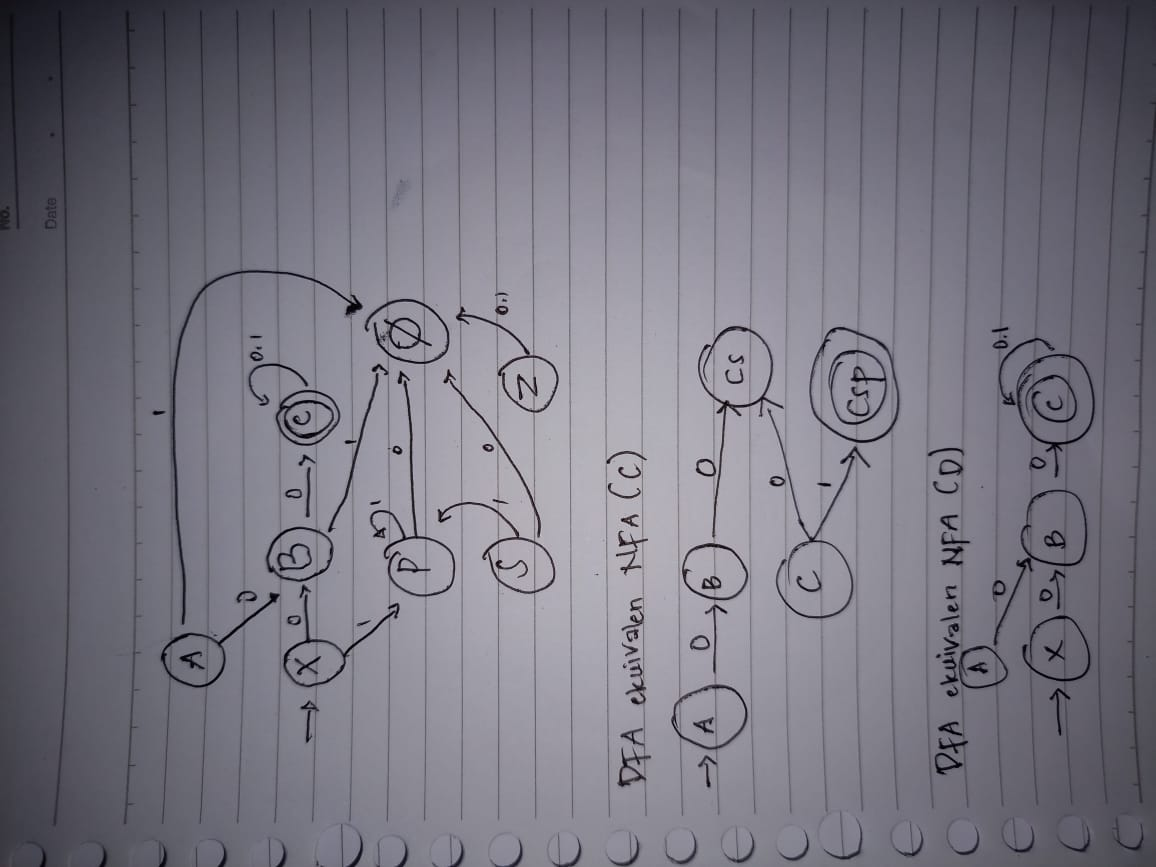 No.
Date
1
A
0
0,1
X
0
B
0
C
1
1
Ø
P
1
0
S
1
0
Z
0,1
DFA ekuivalen NFA (C)
A
0
B
0
CS
C
0
1
CSP
DFA ekuivalen NFA (D)
A
0
0,1
X
0
B
0
C